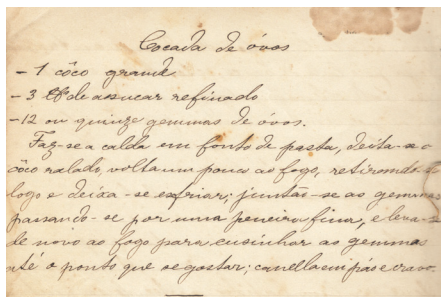 Cocada de óvos
- 1 côco grande
- 3 de assucar refinado
- 12 ou quinze gemmas de óvos.
Faz-se a calda em ponto de pasta, deita-se o
côco ralado, volta um pouco ao fogo, retirando-se
logo e deixa-se esfriar; juntão-se as gemmas
passando-se por uma peneira fina, e leva-se
de novo ao fogo para cusinhar as gemmas
até o ponto que se gostar; canella em pó e cravo.